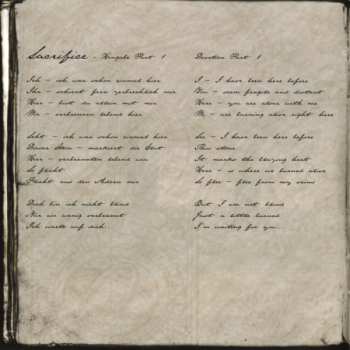 Sacrifice - Part 1
Ich - ich war schon einmal hier
Ihr - scheint fern
Hier - bist du allein mit mir
Wir - verbrennen lebend hier
Seht - ich war schon einmal hier
Dieser Stein - markiert den Ort
Hier - verbrannten lebend wir
So flieht
Flieht aus den Adern mir
Doch bin ich nicht blind
Nur ein wenig verbrannt
Ich warte auf dich
Devotion Part 1
I - I have been here before
You - seem fragile and distant
Here - you are alone with me
We - are burning alive right here
See - I have been here before
This stone
It marks the very
Here - is where we burned alive
So flee - flee from my veins
But I am not blind
Just a little burned
I'm waiting for you